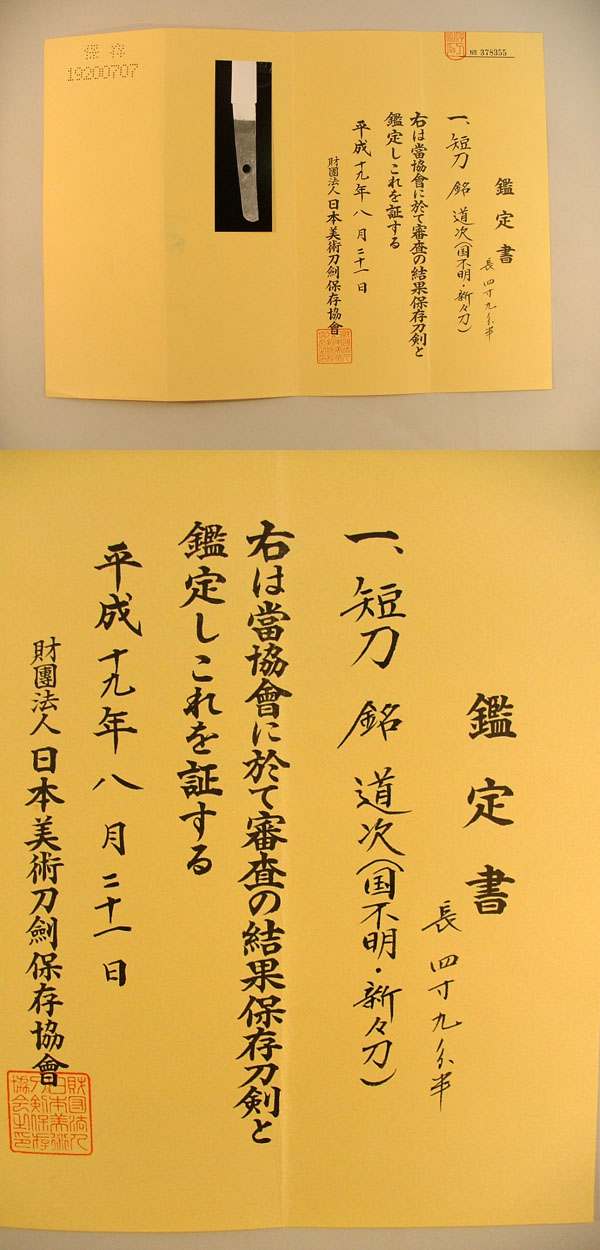 保存
19200707
№ 378355
鑑定書
長 四寸九分半
一、短刀 銘 道次(国不明・新々刀)
右は當協會に於て審査の結果保存刀剣と
鑑定しこれを証する
平成十九年八月二十一日
財團法人日本美術刀劍保存協會
鑑定書
長 四寸九分半
一、短刀 銘 道次(国不明・新々刀)
右は當協會に於て審査の結果保存刀剣と
鑑定しこれを証する
平成十九年八月二十一日
財團法人日本美術刀劍保存協會
財団法人
日本美術
刀剣保存
協会之印